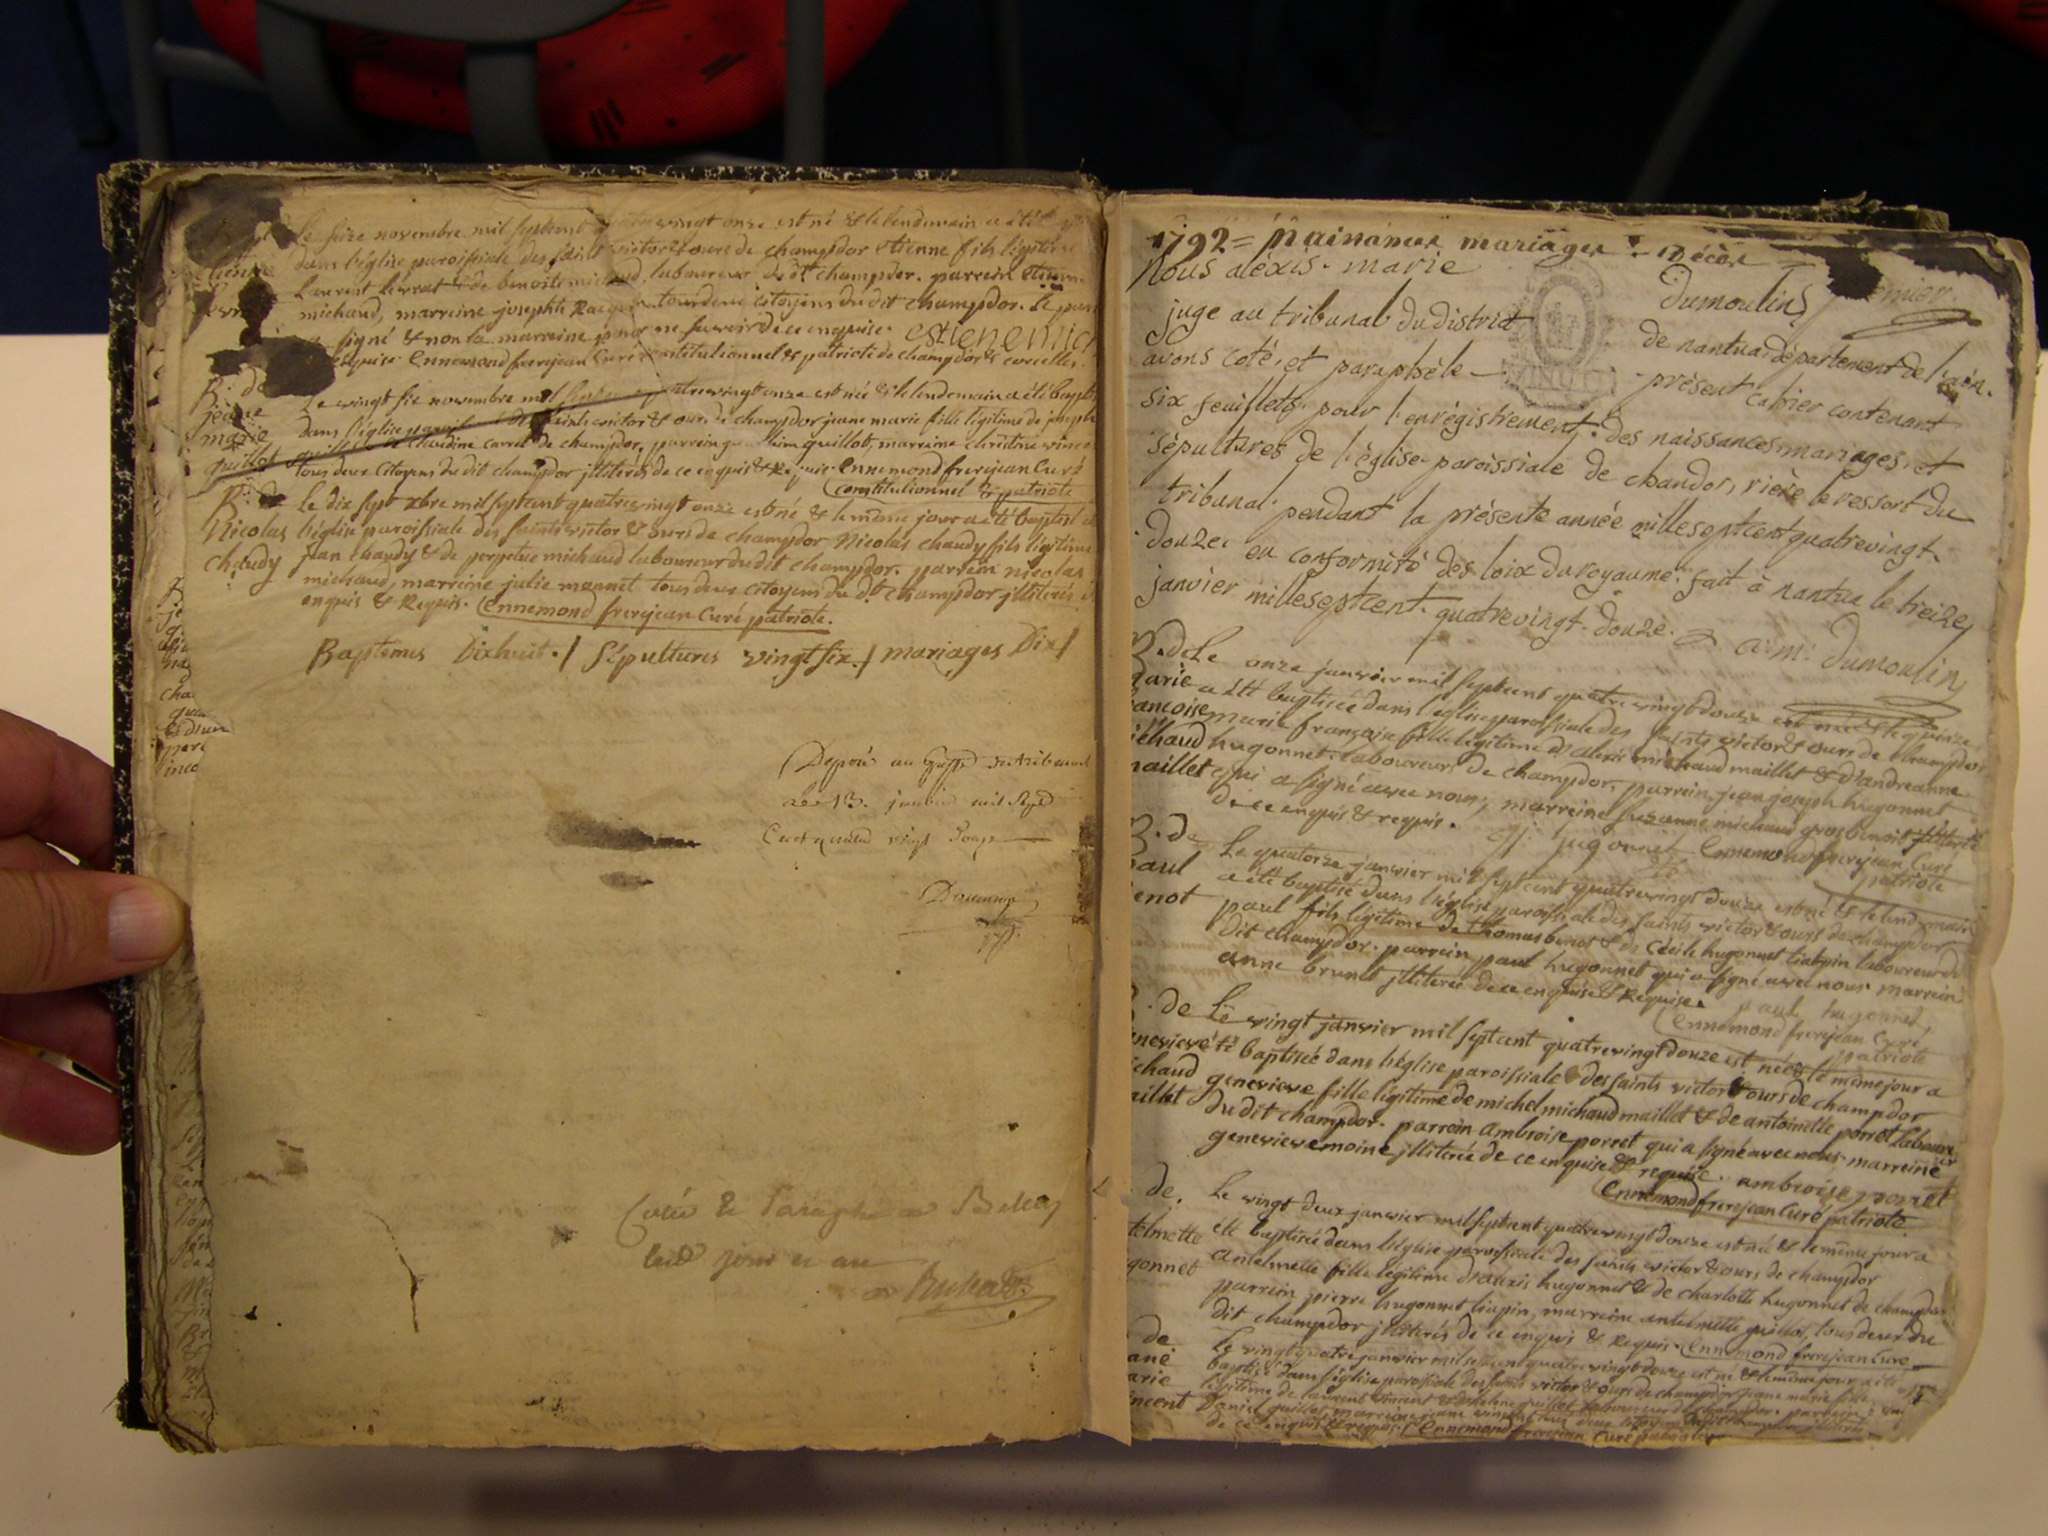 Le seize novembre mil septcent quatrevingt onze est né & le lendemain a été
dans l'église paroissiale des saints victor & ours de champdor etienne fils légitime
Etienne
laurent & de benoite michaud, laboureur du dt champdor. parrein etienne
michaud, marreine josephte tous deux citoyens du dit champdor. le parrein
signé & non la marreine pour ne savoir de ce enquise. estienemic
requise. Ennemond frerejean Curé constitutionnel & patriote de champdor & corcelles.
B. de
jeane
marie
guillot
Le vingt six novembre mil septcent quatrevingt onze est née & le lendemain a été
dans l'église des saints victor & ours de champdor jeane marie fille légitime de joseph
guillot & claudine carrel de champdor, parrein guillot, marreine christine
tous deux citoyens du dit champdor jlliterés de ce enquis & requis. Ennemond frerejean Curé
constitutionnel & patriote
B. de
Nicolas
chaudy
Le dix sept xbre mil septcent quatrevingt onze est né & le même jour a été baptisé
l'église paroissiale des saints victor & ours de champdor Nicolas chaudy fils légitime
jean chaudy & de perpetue michaud laboureur du dit champdor. parrein nicolas
michaud, marreine julie monnet tous deux citoyens du dt champdor jlliterés
enquis & requis. Ennemond frerejean Curé patriote.
Baptemes Dixhuit. / Sépultures vingt six. / mariages Dix /
Deposé au Greffe du tribunal
le 13. janvier mil sept
Cent quatre vingt Douze
Cotté & Paraphé a Belley
led jour et an
1792 = Naissances mariages Décès
Nous alexis-marie Dumoulin premier
juge au tribunal du district de nantua département de l'ain.
avons coté et paraphé le présent cahier contenant
six feuillets pour l'enrégistrement des naissances mariages et
sépultures de l'église paroissiale de chandor, rière le ressort du
tribunal pendant la présente année millesept cent quatrevingt
douze. en conformité des loix du royaume. fait à nantua le treize
janvier millesept cent quatrevingt douze. a: m: Dumoulin
B. de
marie
francoise
michaud
maillet
Le onze janvier mil septcent quatrevingt douze est née & le quinze
a été baptisée dans l'église paroissiale des saints victor & ours de champdor
marie françoise fille légitime d'alexis michaud maillet & d'andreanne
hugonnet. laboureurs de champdor, parrein jean joseph hugonnet
qui a signé avec nous, marreine suzanne michaud gros benoit jlliterée
de ce enquis & requis. jj hugonnet Ennemond frerejean Curé
patriote
B. de
paul
benot
Le quatorze janvier mil septcent quatrevingt douze est né & le lendemain
a été baptisé dans l'église paroissiale des saints victor & ours de champdor
paul fils légitime de thomas benot & de Cécile hugonnet liapin laboureur du
dit champdor. parrein paul hugonnet qui a signé avec nous marreine
anne brunet jlliterée de ce enquise & Requise. paul hugonnet
Ennemond frerejean Curé
patriote
B. de
genevieve
michaud
maillet
Le vingt janvier mil septcent quatrevingt douze est née & le même jour a
été baptisée dans l'église paroissiale des saints victor & ours de champdor
genevieve fille légitime de michel michaud maillet & de antoinette porret laboureur
du dit champdor. parrein ambroise porret qui a signé avec nous. marreine
genevieve moine jlliterée de ce enquise & requise. ambroise porret
Ennemond frerejean Curé patriote
de.
antelmette
hugonnet
Le vingt deux janvier mil septcent quatrevingt douze est né & le même jour a
été baptisée dans l'église paroissiale des saints victor & ours de champdor
antelmette fille légitime d'alexis hugonnet & de charlotte hugonnet de champdor
parrein pierre hugonnet liapin, marreine antelmette guillot, tous deux du
dit champdor jlliterés de ce enquis & Requis. Ennemond frerejean Curé
de
jeane
marie
vincent
Le vingt quatre janvier mil septcent quatrevingt douze est né & le même jour a été
baptisée dans l'église paroissiale des saints victor & ours de champdor jeane marie fille
légitime de laurent vincent & guillot laboureur de champdor. parrein
Daniel guillot marreine jeane vincent tous deux citoyens du dit champdor jlliterés
de ce enquis & requis. Ennemond frerejean Curé patriote